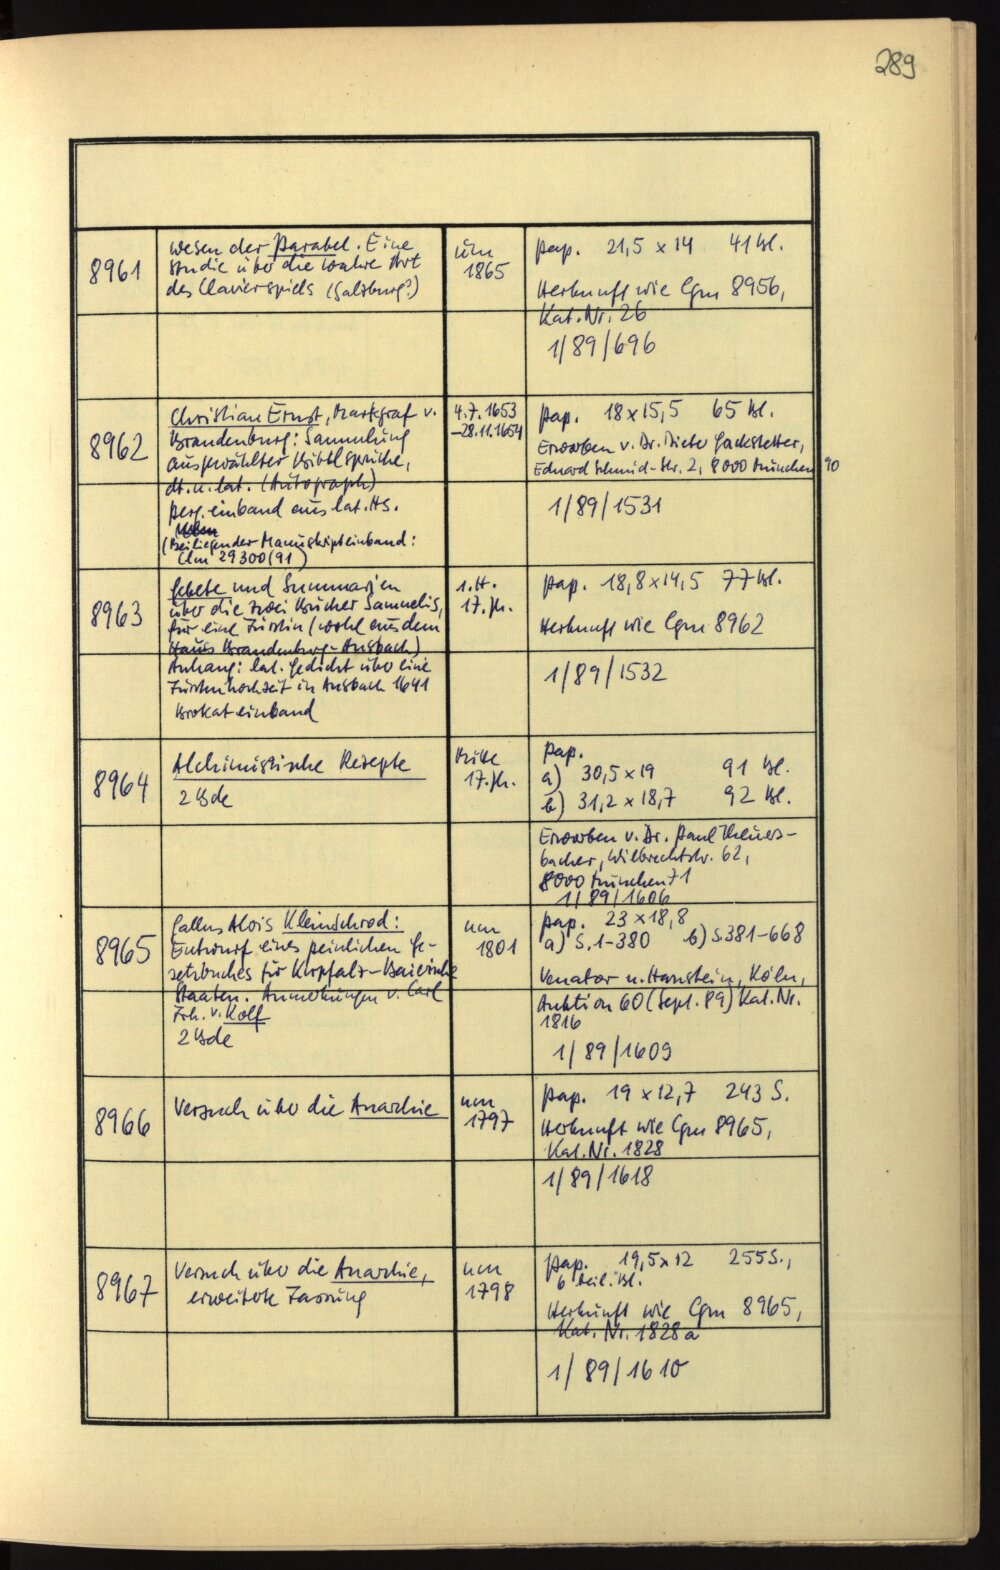 289
8961
Wesen der Parabel. Eine
Studie über die wahre Art
des Clavierspiels (Salzburg?)
um
1865
Pap. 21,5 x 14 41 Bl.
Herkunft wie Cgm 8956,
Kat. Nr. 26
1/89/696
8962
Christian Ernst, Markgraf v.
Brandenburg: Sammlung
ausgewählter Bibelsprüche,
dt. u. lat. (Autograph)
Perg. einband aus lat. Hs.
(Beiliegender Manuskripteinband:
Clm 29300(91)
4.7.1653
-28.11.1654
Pap. 18 x 15,5 65 Bl.
Erworben v. Dr. Dieter Gackstetter,
Eduard Schmid-Str. 2, 8000 München 90
1/89/1531
8963
Gebete und Summarien
über die zwei Bücher Samuelis,
für eine Fürstin (wohl aus dem
Haus Brandenburg-Ansbach)
Anhang: lat. Gedicht über eine
Fürstenhochzeit in Ansbach 1641
Brokateinband
1. H.
17. Jh.
Pap. 18,8 x 14,5 77 Bl.
Herkunft wie Cgm 8962
1/89/1532
8964
Alchimistische Rezepte
2 Bde
Mitte
17. Jh.
Pap.
a) 30,5 x 19 91 Bl.
b) 31,2 x 18,7 92 Bl.
Erworben v. Dr. Paul Theuer-
bacher, Wilbrechtstr. 62,
8000 München 71
1/89/1606
8965
Gallus Alois Kleinschrod:
Entwurf eines peinlichen Ge-
setzbuches für Kurpfalz-Baierische
Staaten. Anmerkungen v. Carl
Frh. v. Kolf
2 Bde
um
1801
Pap. 23 x 18,8
a) S. 1-380 b) S. 381-668
Venator u. Hanstein, Köln,
Auktion 60 (Sept. 89) Kat. Nr.
1816
1/89/1609
8966
Versuch über die Anarchie
um
1797
Pap. 19 x 12,7 243 S.
Herkunft wie Cgm 8965,
Kat. Nr. 1828
1/89/1618
8967
Versuch über die Anarchie,
erweiterte Fassung
um
1798
Pap. 19,5 x 12 255 S.,
6 beil. Bl.
Herkunft wie Cgm 8965,
Kat. Nr. 1828a
1/89/1610